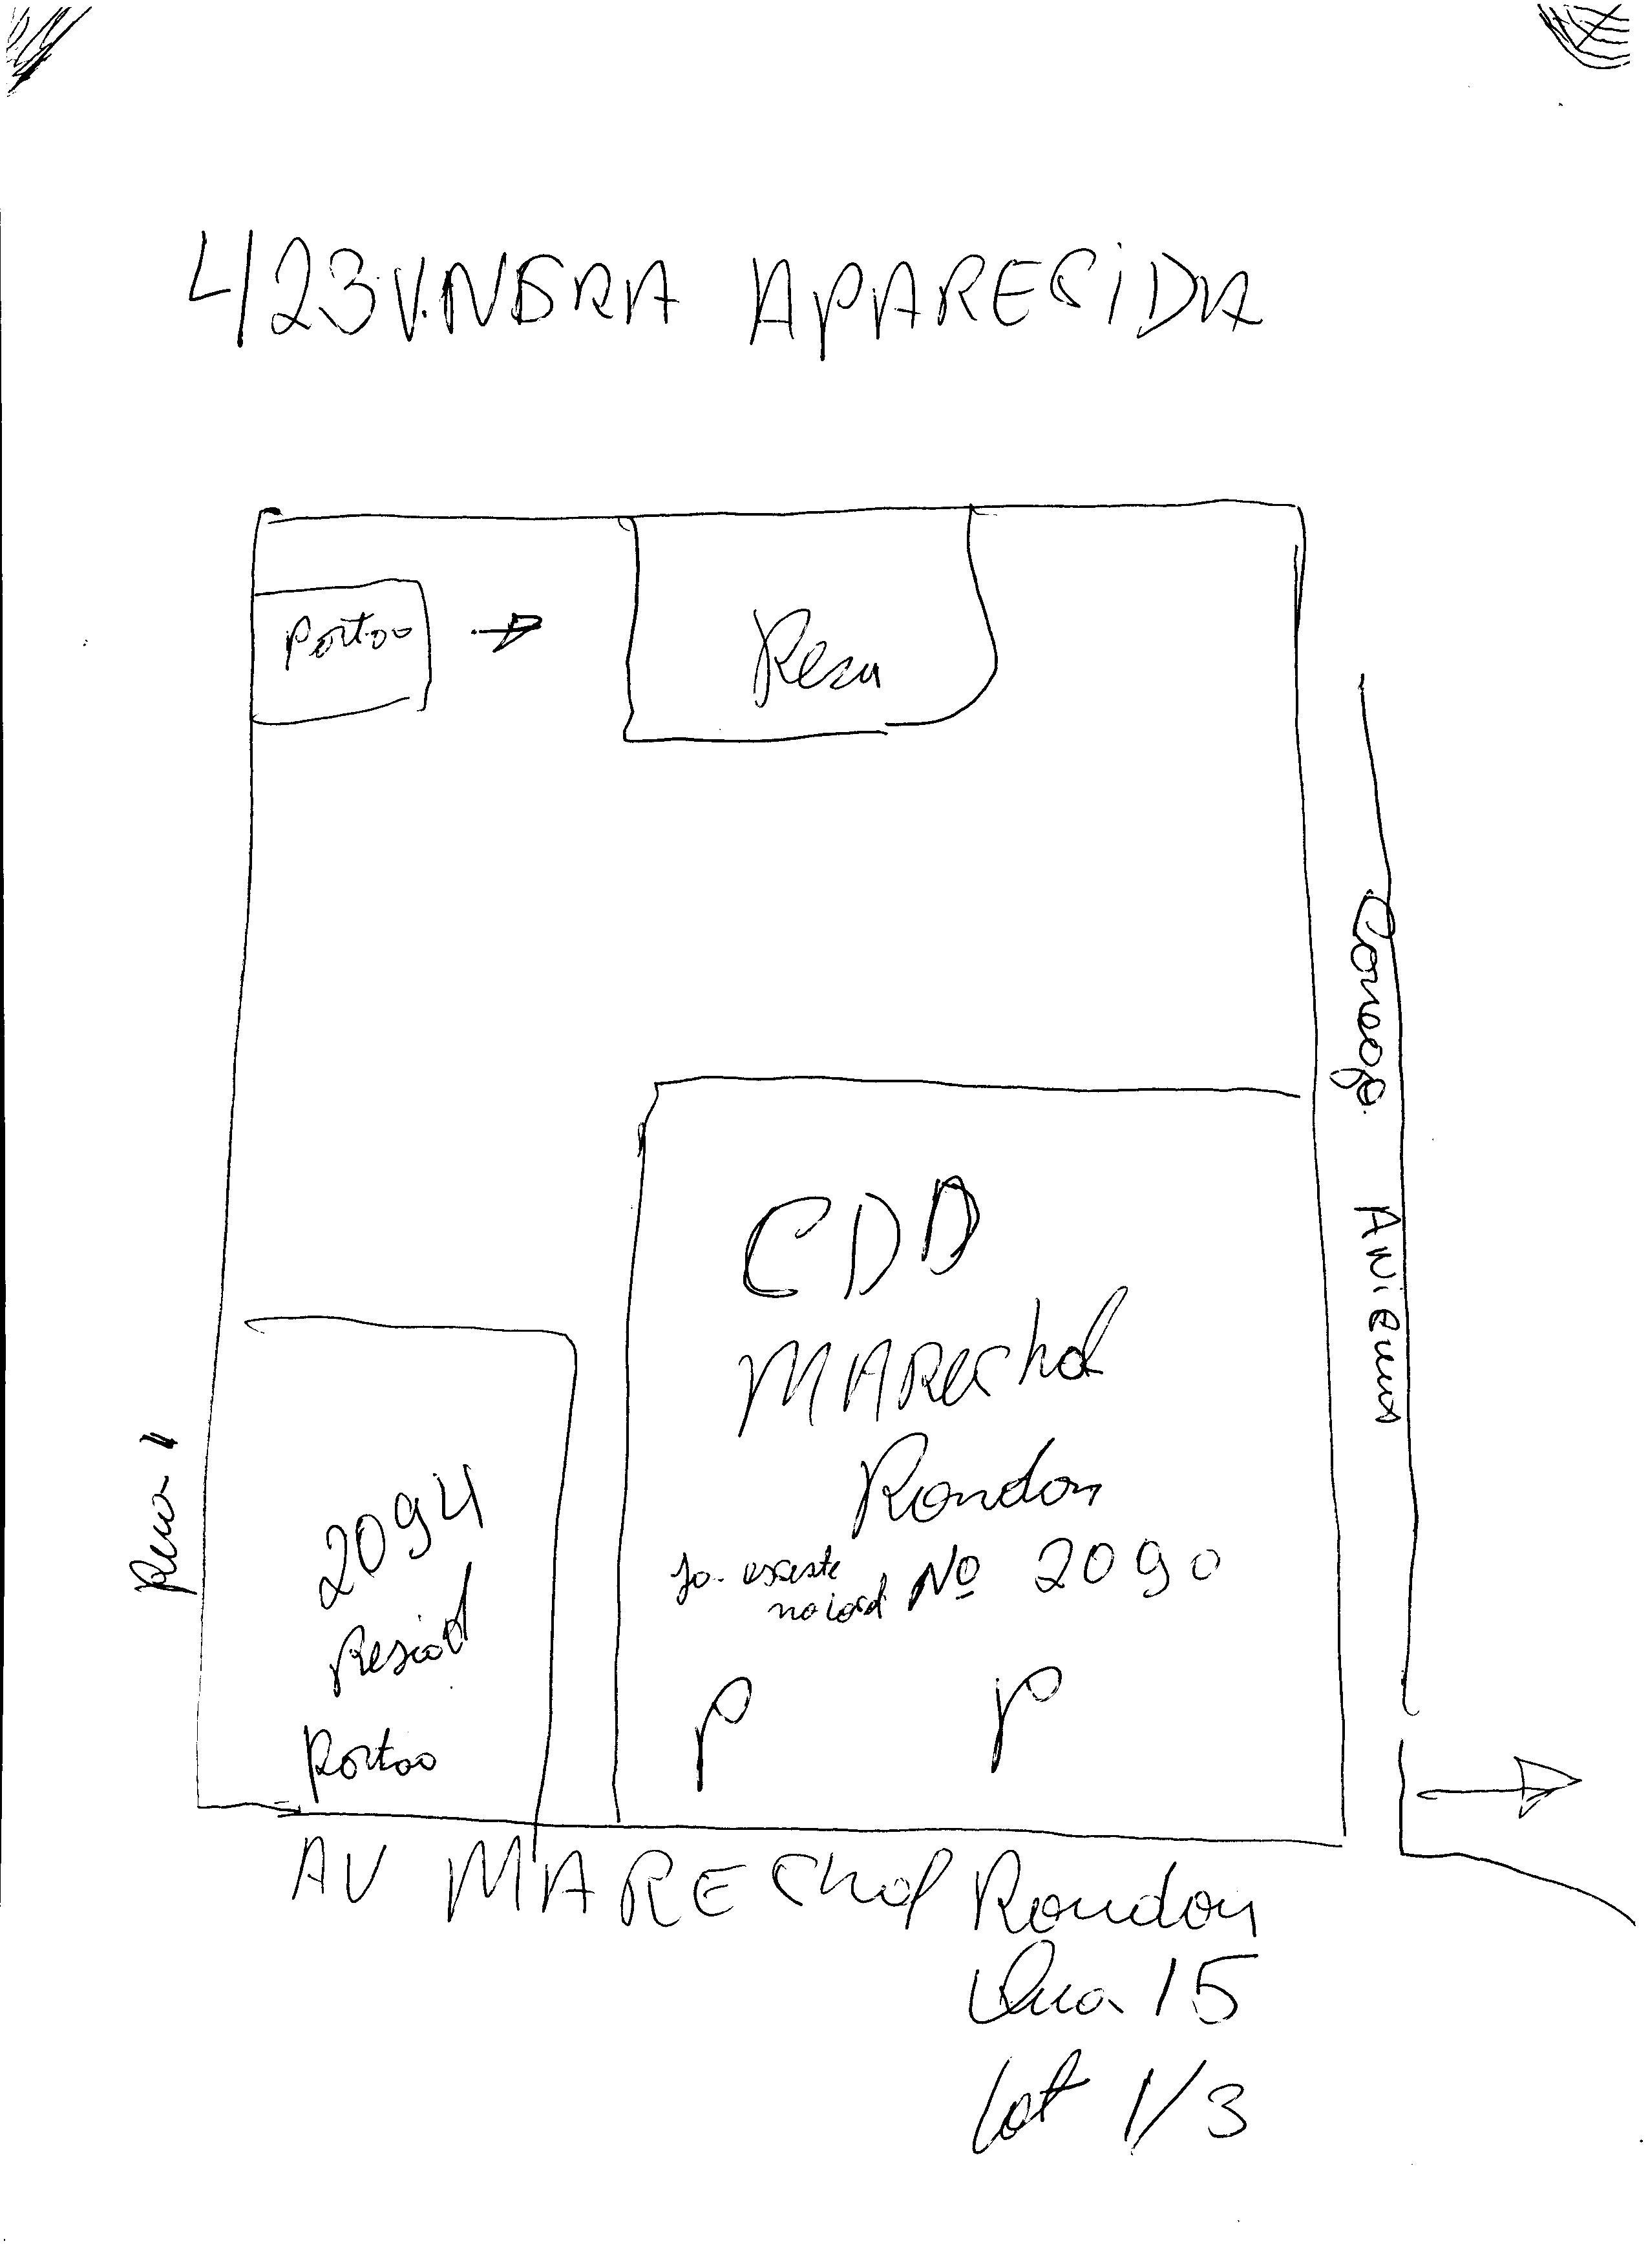 423 V.NSRA APARECIDA
Portao
Resu
Corrego Anicuns
CDD
MARechal
Rondon
Ja existe
no local Nº 2090
P P
Rua 11
2094
Resid
Portao
AV MARECHal Rondon
Qua 15
Lot 1/3